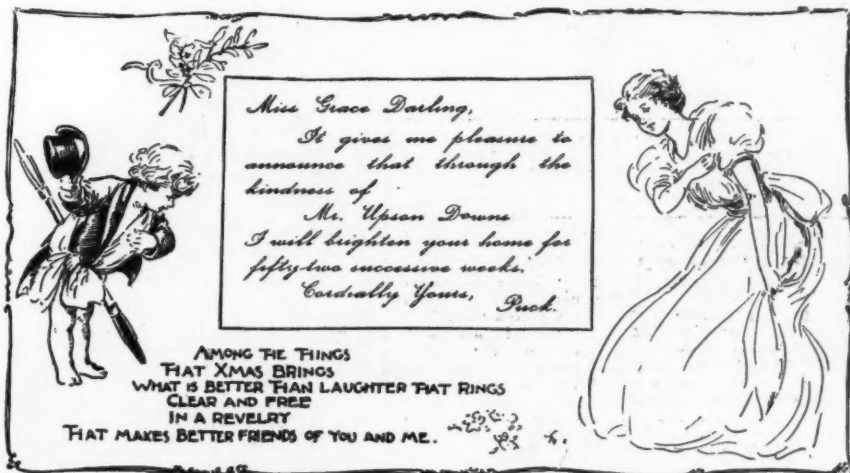 Miss Grace Darling,
It gives me pleasure to
announce that through the
kindness of
Mr. Upson Downs
I will brighten your home for
fifty-two successive weeks.
Cordially Yours,
Puck.
AMONG THE THINGS
THAT XMAS BRINGS
WHAT IS BETTER THAN LAUGHTER THAT RINGS
CLEAR AND FREE
IN A REVELRY
THAT MAKES BETTER FRIENDS OF YOU AND ME.